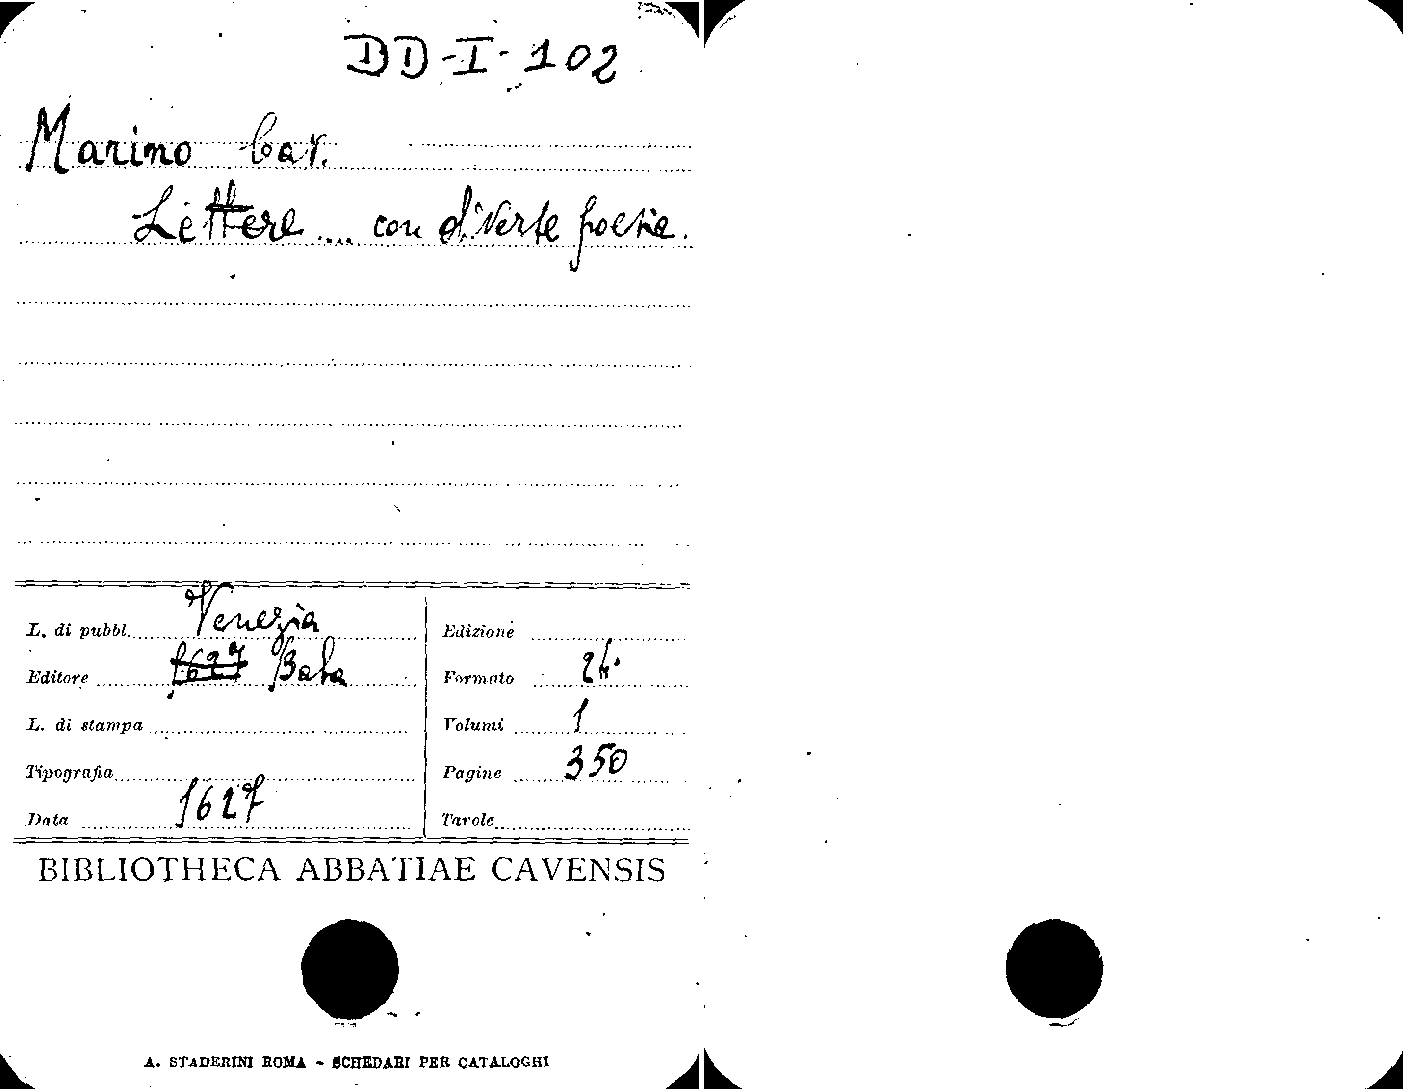 DD-I-102
Marino Cav.
Lettere .... con diverse poesie.
L. di pubbl. Venezia
Editore 1627 Baba
L. di stampa
Tipografia
Data 1627
Edizione
Formato 24.
Volumi 1
Pagine 350
Tavole
BIBLIOTHECA ABBATIAE CAVENSIS
A. STADERINI ROMA - SCHEDARI PER CATALOGHI